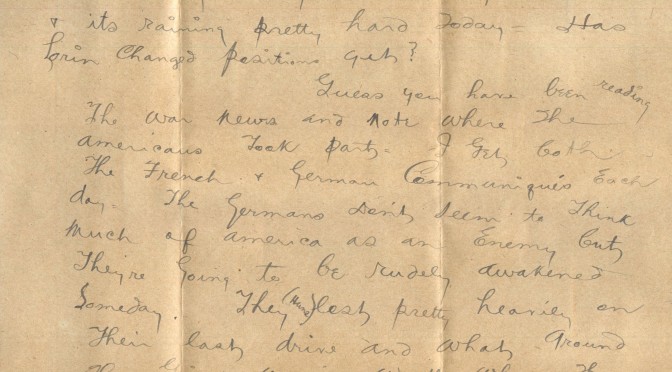 & its raining pretty hard today - Has
Orin Changed positions yet?
Guess you have been reading
The war news and Note where The
americans Took part - I Get both
The French & German Communiqués Each
day - The Germans Don't Seem to Think
Much of america as an Enemy but
They're Going to be rudely awakened
Someday. They (Huns) lost pretty heavily on
Their last drive and what Ground